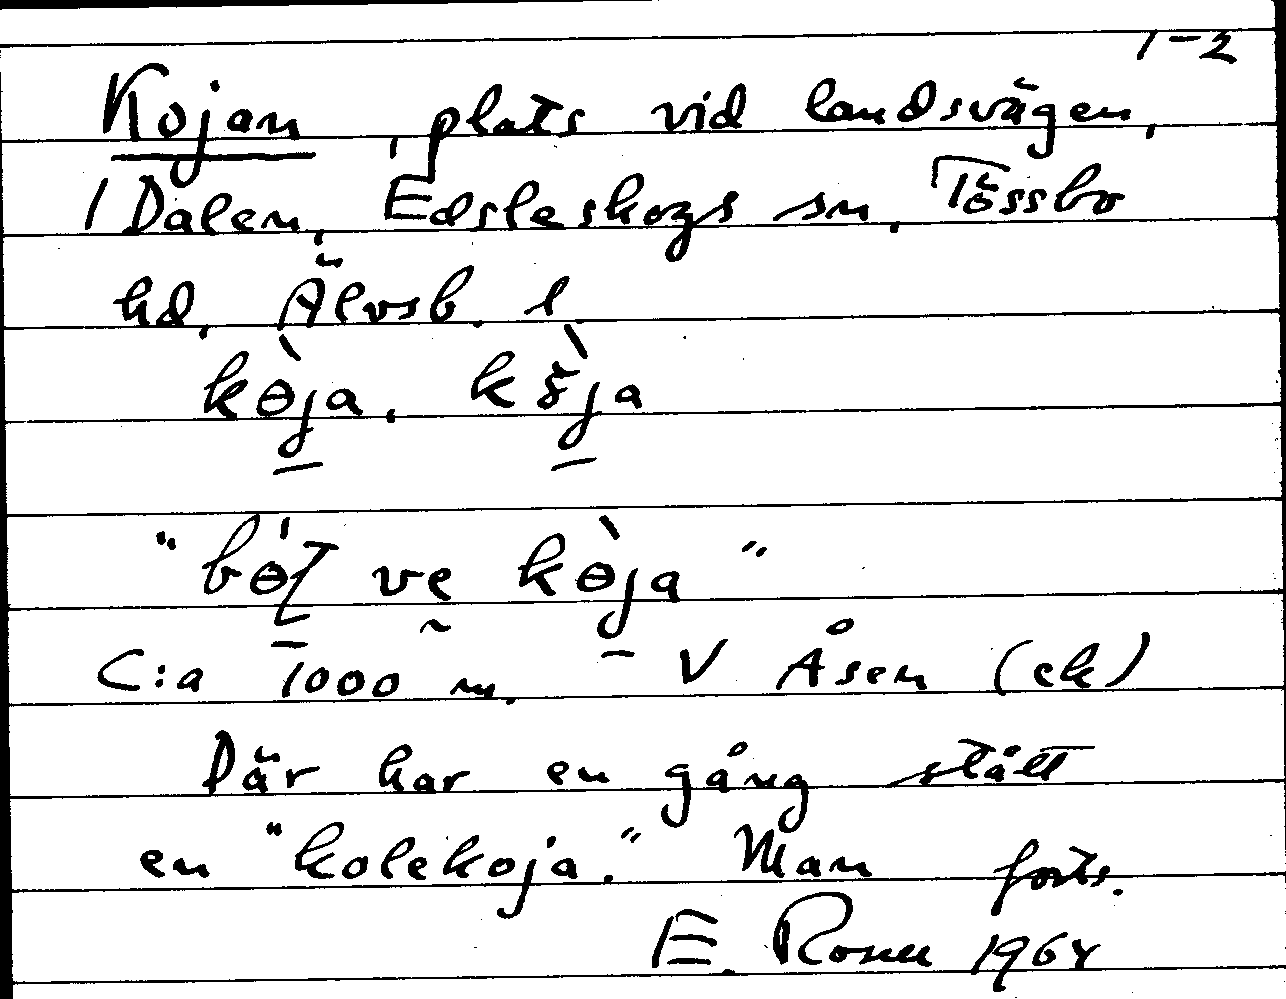 1-2
Kojan, plats vid landsvägen,
i Dalen, Edsleskogs sn, Tössbo
hd, Älvsb. l
kө̀ja, 
"bө́ ve kө̀ja"
C:a 1000 m. V Åsen (ek)
Där har en gång stått
en "kolekoja." Man forts.
E. 1964